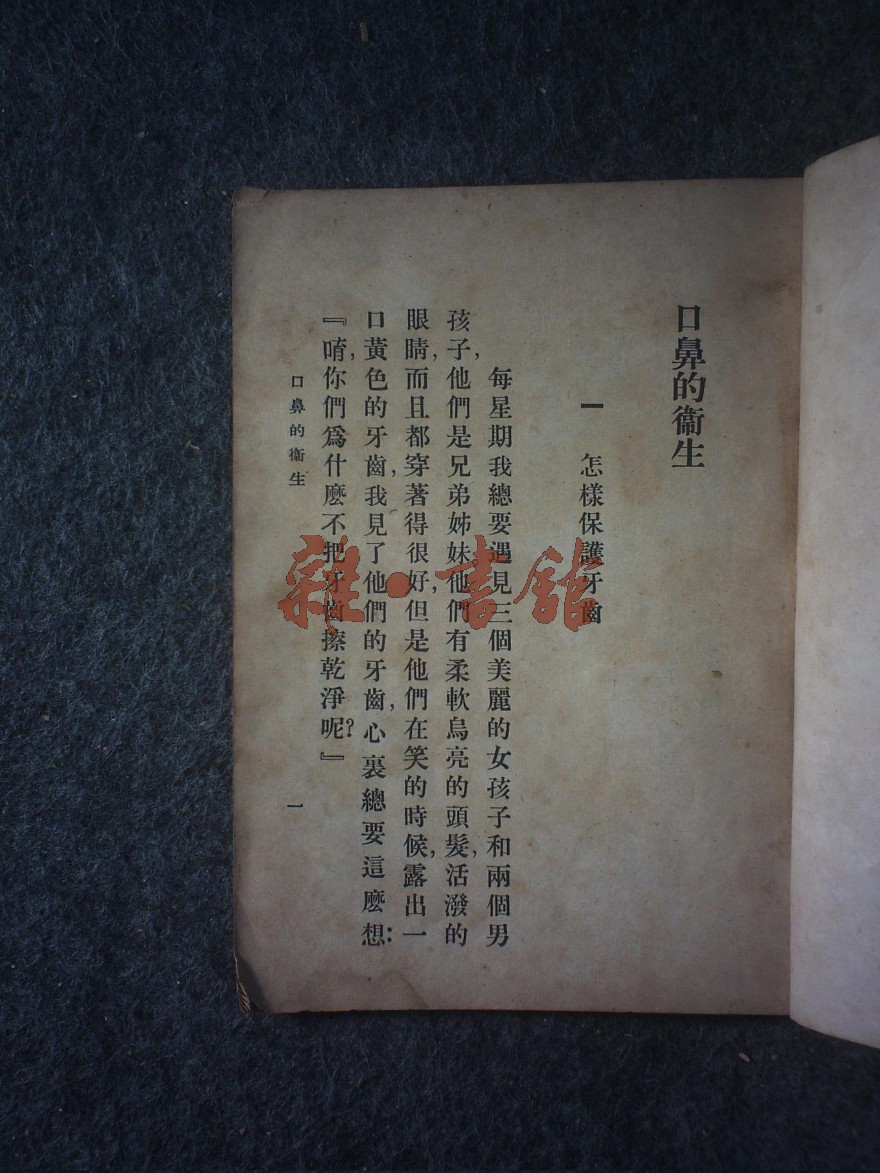 口鼻的衞生
一　怎樣保護牙齒
每星期我總要遇見三個美麗的女孩子和兩個男
孩子，他們是兄弟姊妹，他們有柔軟烏亮的頭髮，活潑的
眼睛，而且都穿著得很好，但是他們在笑的時候，露出一
口黃色的牙齒，我見了他們的牙齒，心裏總要這麽想：
『唷，你們爲什麽不把牙齒擦乾淨呢？』
口鼻的衞生
一
雜·書館